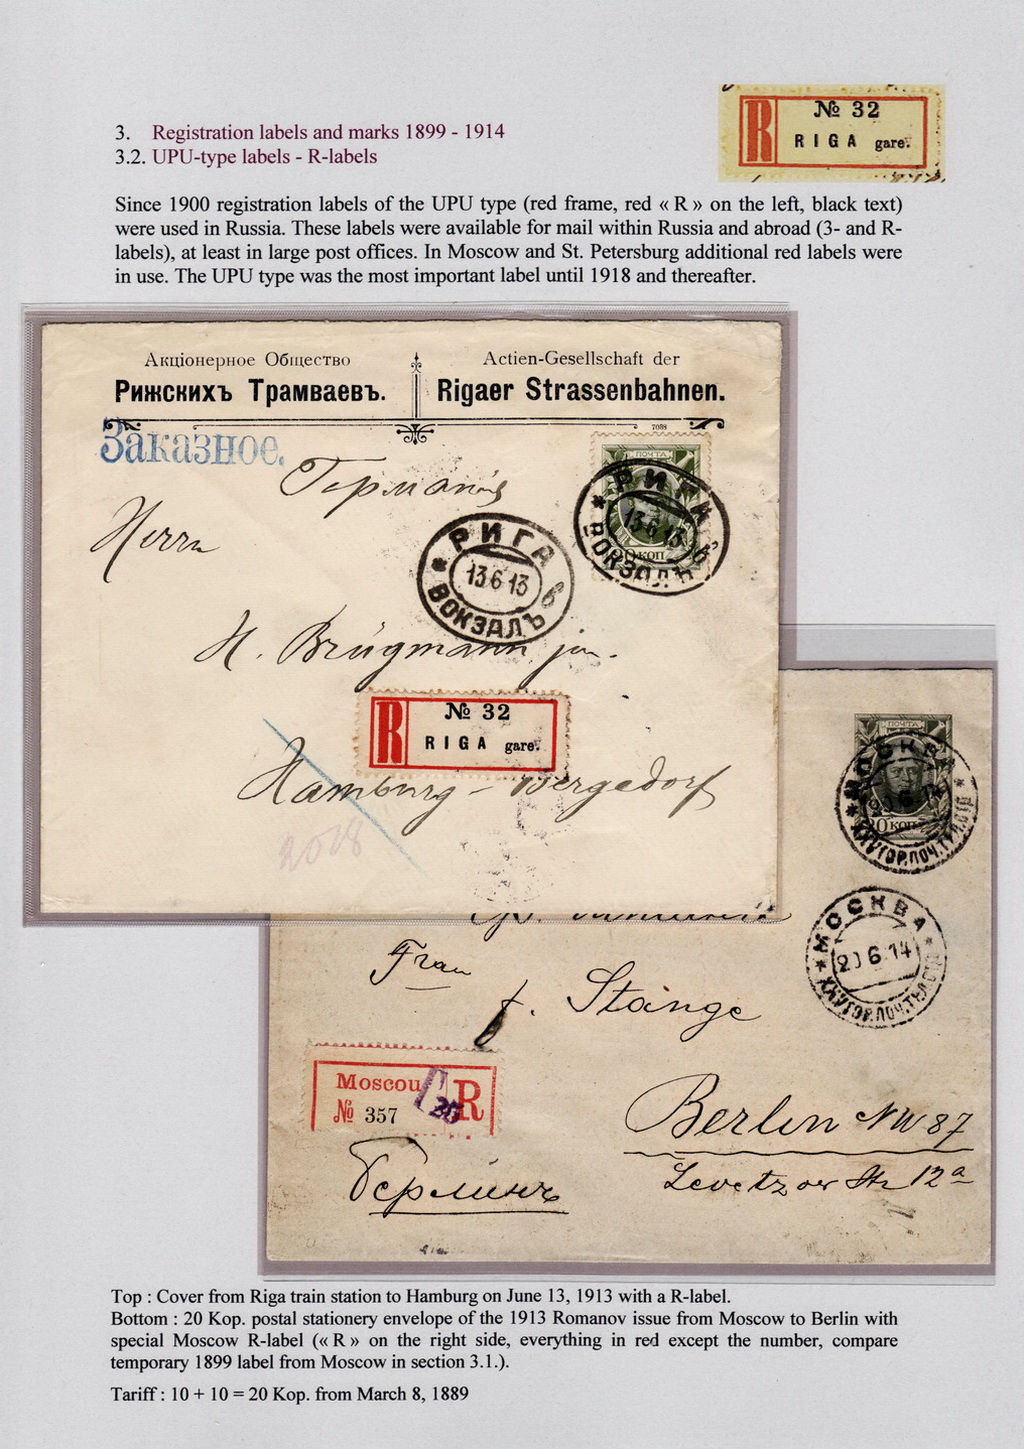 3. Registration labels and marks 1899 - 1914
3.2. UPU-type labels - R-labels
R
№ 32
RIGA gare.
Since 1900 registration labels of the UPU type (red frame, red « R » on the left, black text)
were used in Russia. These labels were available for mail within Russia and abroad (3- and R-
labels), at least in large post offices. In Moscow and St. Petersburg additional red labels were
in use. The UPU type was the most important label until 1918 and thereafter.
Акціонерное Общество
Рижскихъ Трамваевъ.
Actien-Gesellschaft der
Rigaer Strassenbahnen.
7088
Заказное.
Германія
ПОЧТА
20 КОП
РИГА
13 6 13
ВОКЗАЛЪ
Herrn
РИГА
13 6 13
ВОКЗАЛЪ
H. Brügmann jun.
R
№ 32
RIGA gare.
Hamburg - Bergedorf
2018
ПОЧТА
20 КОП
МОСКВА
МОСКВА
20 6 14
Frau
f. Stange
Moscou R
№ 357
Berlin NW 87
Levetzow Str 12a
Берлинъ
Top : Cover from Riga train station to Hamburg on June 13, 1913 with a R-label.
Bottom : 20 Kop. postal stationery envelope of the 1913 Romanov issue from Moscow to Berlin with
special Moscow R-label (« R » on the right side, everything in red except the number, compare
temporary 1899 label from Moscow in section 3.1.).
Tariff : 10 + 10 = 20 Kop. from March 8, 1889